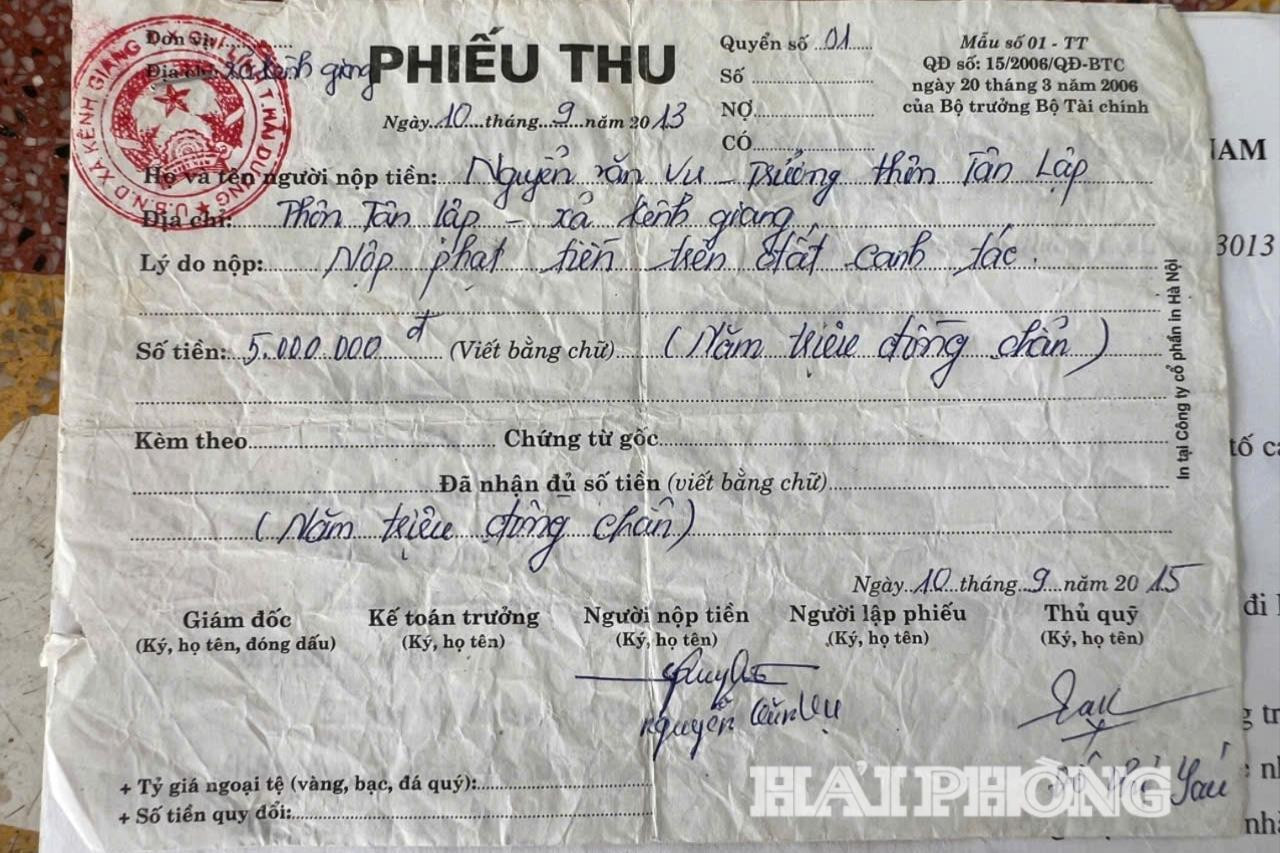 Đơn vị:
Địa chỉ: xã kênh giang
PHIẾU THU
Ngày 10 tháng 9 năm 2013
Quyển số 01
Số
NỢ
CÓ
Mẫu số 01 - TT
QĐ số: 15/2006/QĐ-BTC
ngày 20 tháng 3 năm 2006
của Bộ trưởng Bộ Tài chính
U.B.N.D XÃ KÊNH GIANG T. HẢI DƯƠNG
Họ và tên người nộp tiền: Nguyễn văn Vu - Trưởng thôn Tân Lập
Địa chỉ: Thôn Tân lập - xã kênh giang
Lý do nộp: Nộp phạt tiền trên đất canh tác.
Số tiền: 5.000.000 đ (Viết bằng chữ) (Năm triệu đồng chẵn)
Kèm theo Chứng từ gốc
Đã nhận đủ số tiền (viết bằng chữ)
(Năm triệu đồng chẵn)
Ngày 10 tháng 9 năm 2015
Giám đốc
(Ký, họ tên, đóng dấu)
Kế toán trưởng
(Ký, họ tên)
Người nộp tiền
(Ký, họ tên)
Người lập phiếu
(Ký, họ tên)
Thủ quỹ
(Ký, họ tên)
Nguyễn Văn Vụ
+ Tỷ giá ngoại tệ (vàng, bạc, đá quý):
+ Số tiền quy đổi:
In tại Công ty cổ phần in Hà Nội
HẢI PHÒNG
NAM
3013
tố
đi